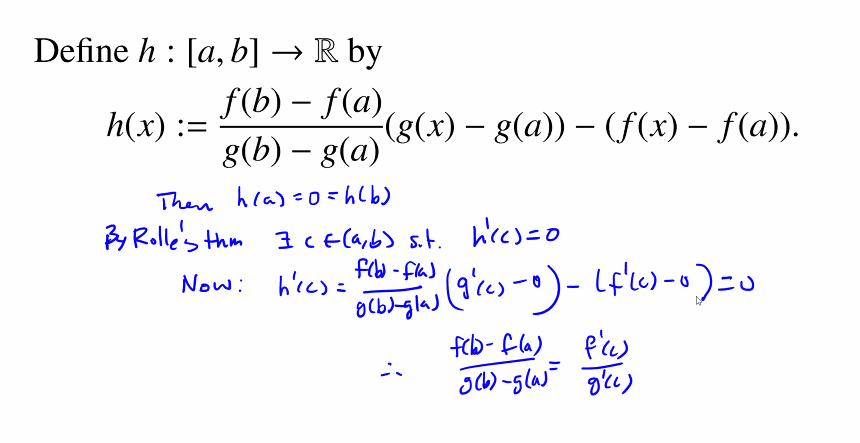 Define h : [a, b] → ℝ by
h(x) := \frac{f(b) − f(a)}{g(b) − g(a)}(g(x) − g(a)) − (f(x) − f(a)).
Then h(a) = 0 = h(b)
By Rolle's thm ∃ c ∈ (a,b) s.t. h'(c) = 0
Now: h'(c) = \frac{f(b) - f(a)}{g(b) - g(a)} (g'(c) - 0) - (f'(c) - 0) = 0
∴ \frac{f(b) - f(a)}{g(b) - g(a)} = \frac{f'(c)}{g'(c)}